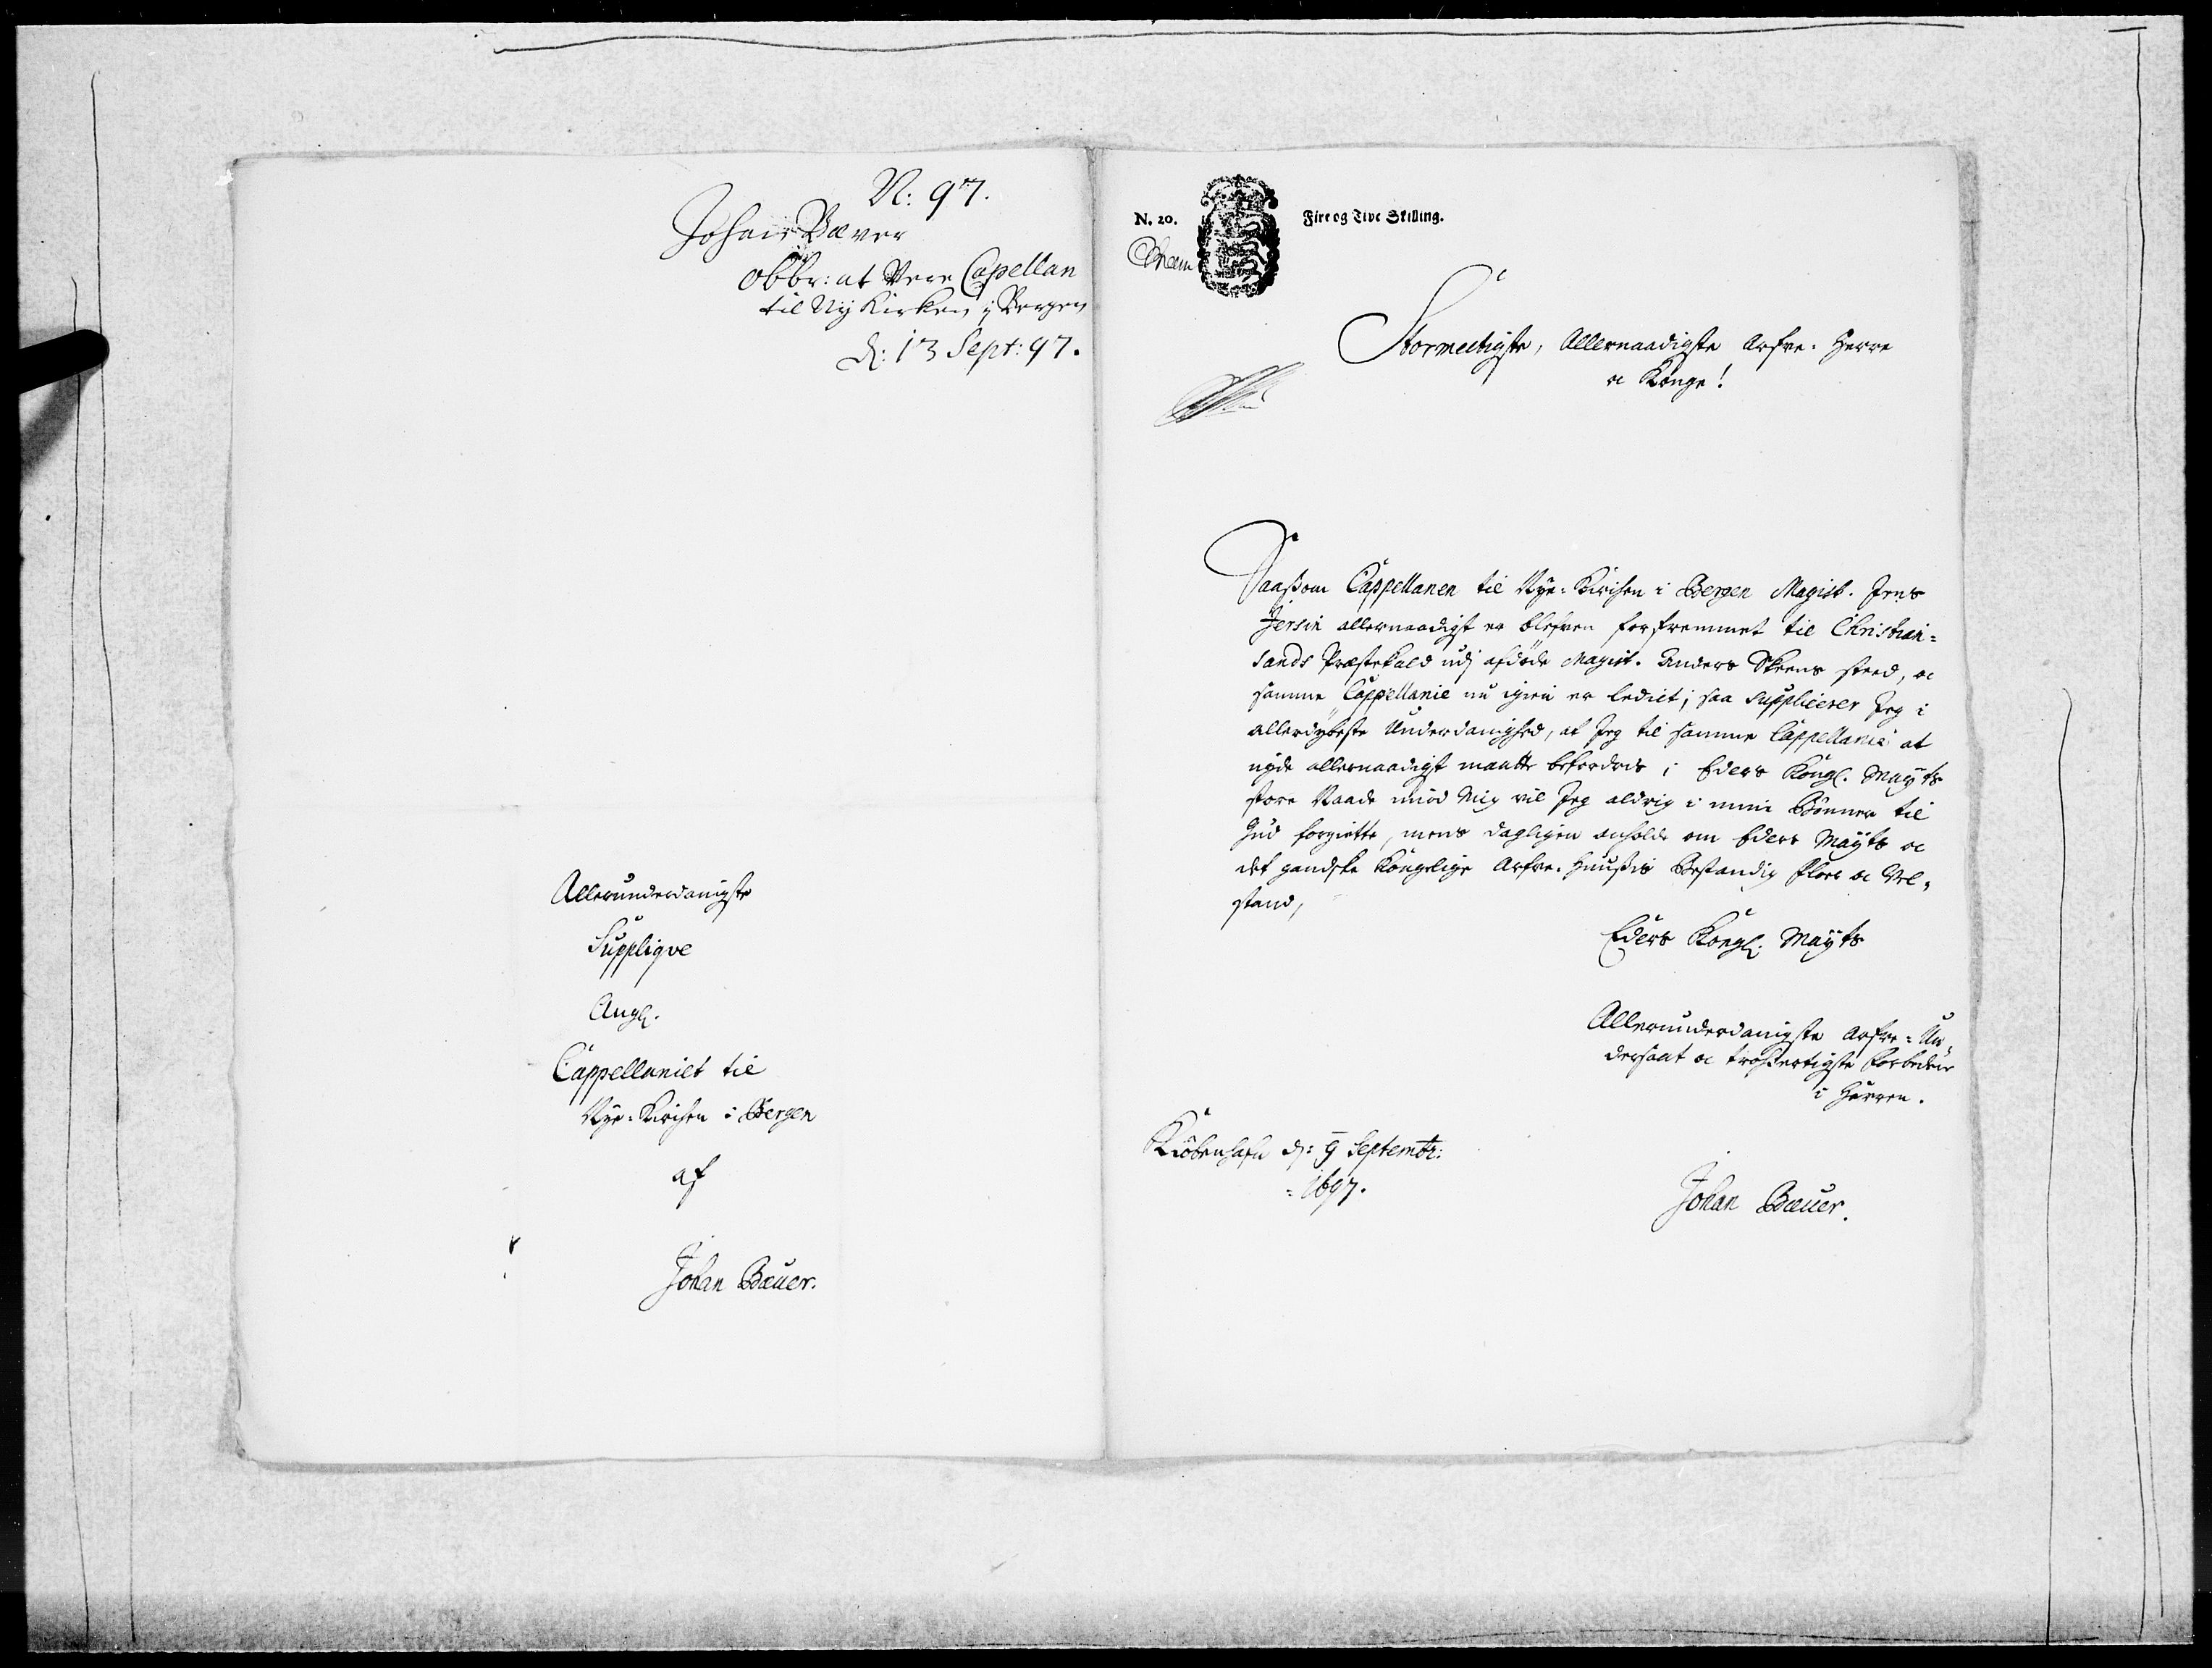 N: 97.
Johan Bæver
obbr: at Vere Capellan
til Ny Kirken i Bergen
d: 13 Sept: 97.
Allerunderdanigste
Supplique
Angl.
Cappellaniet til
Nye-Kirchen i Bergen
af
Johan Bæuer.
N. 20. Fire og Tive Skilling.
Stormectigste, Allernaadigste Arfve-Herre
oc Konge!
Saasom Cappellanen til Nye-Kirchen i Bergen Magist. Jens
Jersin allernaadigst er blefven forfremmet til Christian-
sands Præstekald udj afdøde Magist. Anders Skeens sted, oc
samme Cappellanie nu igien er ledict; saa supplicerer Jeg i
allerdybeste Underdanighed, at Jeg til samme Cappellanie at
nyde allernaadigst maatte befordris; Eders Kongl. Mayts
store Naade imod Mig vil Jeg aldrig i mine Bønner til
Gud forgiette, mens dagligen anholde om Eders Mayts oc
det gandske Kongelige Arfve-Huusis Bestandig Floer oc Vel-
stand,
Eders Kongl. Mayts
Allerunderdanigste Arfve-Un-
dersaat oc troskyldigste Forbedere
i Herren.
Kiøbenhafn d: 9 Septembr:
1697.
Johan Bæuer.